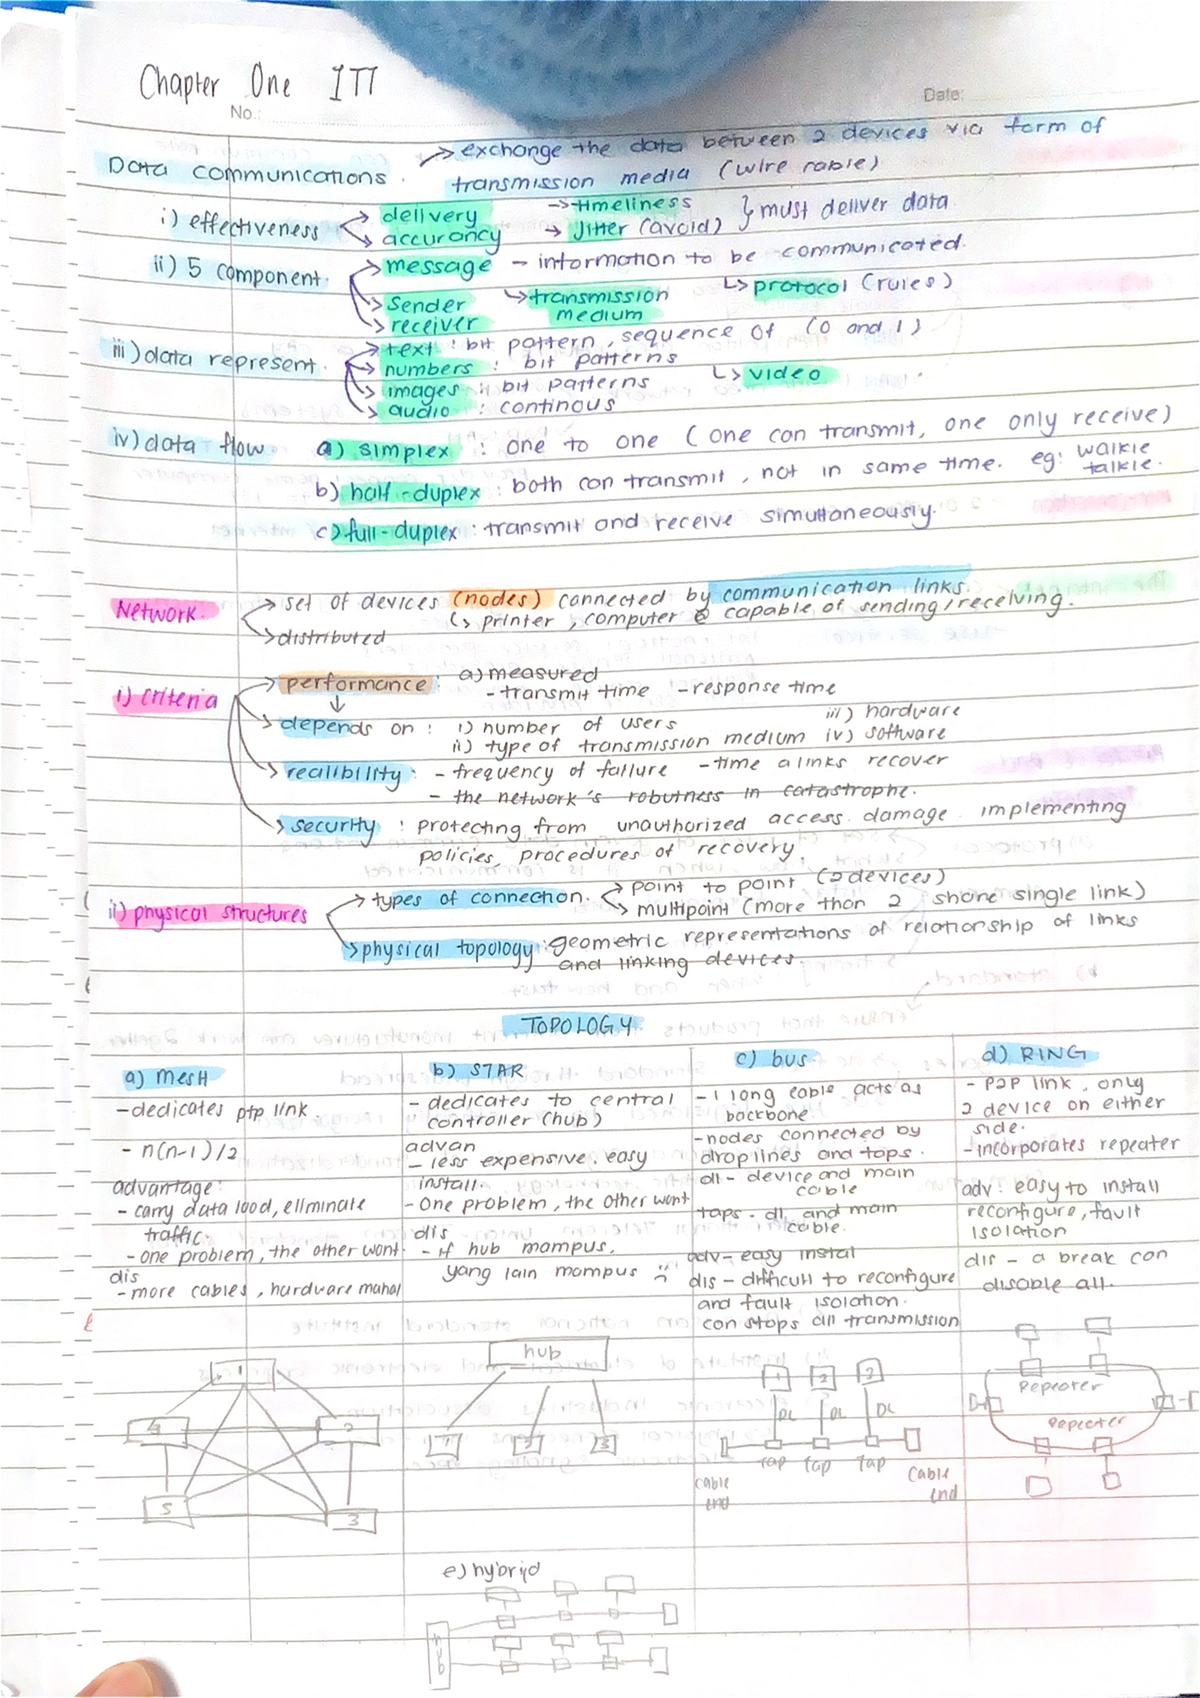 Chapter One ITT
No.:
Date:
Data communications. → exchange the data between 2 devices via form of
transmission media (wire cable)
i) effectiveness → delivery → timeliness } must deliver data
→ accurancy → Jitter (avoid)
ii) 5 component. → message - information to be communicated.
→ sender ↳ transmission medium ↳ protocol (rules)
→ receiver
iii) data represent. → text : bit pattern, sequence of (0 and 1)
→ numbers : bit patterns
→ images : bit patterns ↳ video
→ audio : continous
iv) data flow. a) simplex : one to one (one can transmit, one only receive)
b) half-duplex : both can transmit, not in same time. eg: walkie talkie.
c) full-duplex : transmit and receive simultaneously.
Network. → set of devices (nodes) connected by communication links.
↳ printer, computer @ capable of sending/receiving.
→ distributed
i) criteria → performance : a) measured
- transmit time - response time
↓
→ depends on : i) number of users iii) hardware
ii) type of transmission medium iv) software
→ realibility : - frequency of failure - time a links recover
- the network's robutness in catastrophe.
→ security : protecting from unauthorized access. damage. implementing
policies, procedures of recovery.
ii) physical structures → types of connection. → point to point (2 devices)
→ multipoint (more than 2 share single link)
→ physical topology : geometric representations of relationship of links
and linking devices.
TOPOLOGY.
a) MesH
- dedicates ptp link.
- n(n-1)/2
advantage:
- carry data load, eliminate
traffic.
- one problem, the other wont
dis
- more cables, hardware mahal
1
4
2
5
3
b) STAR
- dedicates to central
controller (hub)
advan
- less expensive. easy
install.
- One problem, the other wont
dis
- if hub mampus,
yang lain mampus
hub
1
2
3
c) bus.
- 1 long cable acts as
backbone
- nodes connected by
droplines and taps.
dl - device and main
cable
taps - dl and main
cable.
adv - easy instal
dis - difficult to reconfigure
and fault isolation.
can stops all transmission
1 2 3
DL DL DL
tap tap tap
Cable end
Cable end
d) RING
- P2P link, only
2 device on either
side.
- incorporates repeater
adv : easy to install
reconfigure, fault
isolation
dis - a break can
disable all.
Repeater
Repeater
e) hybrid
hub